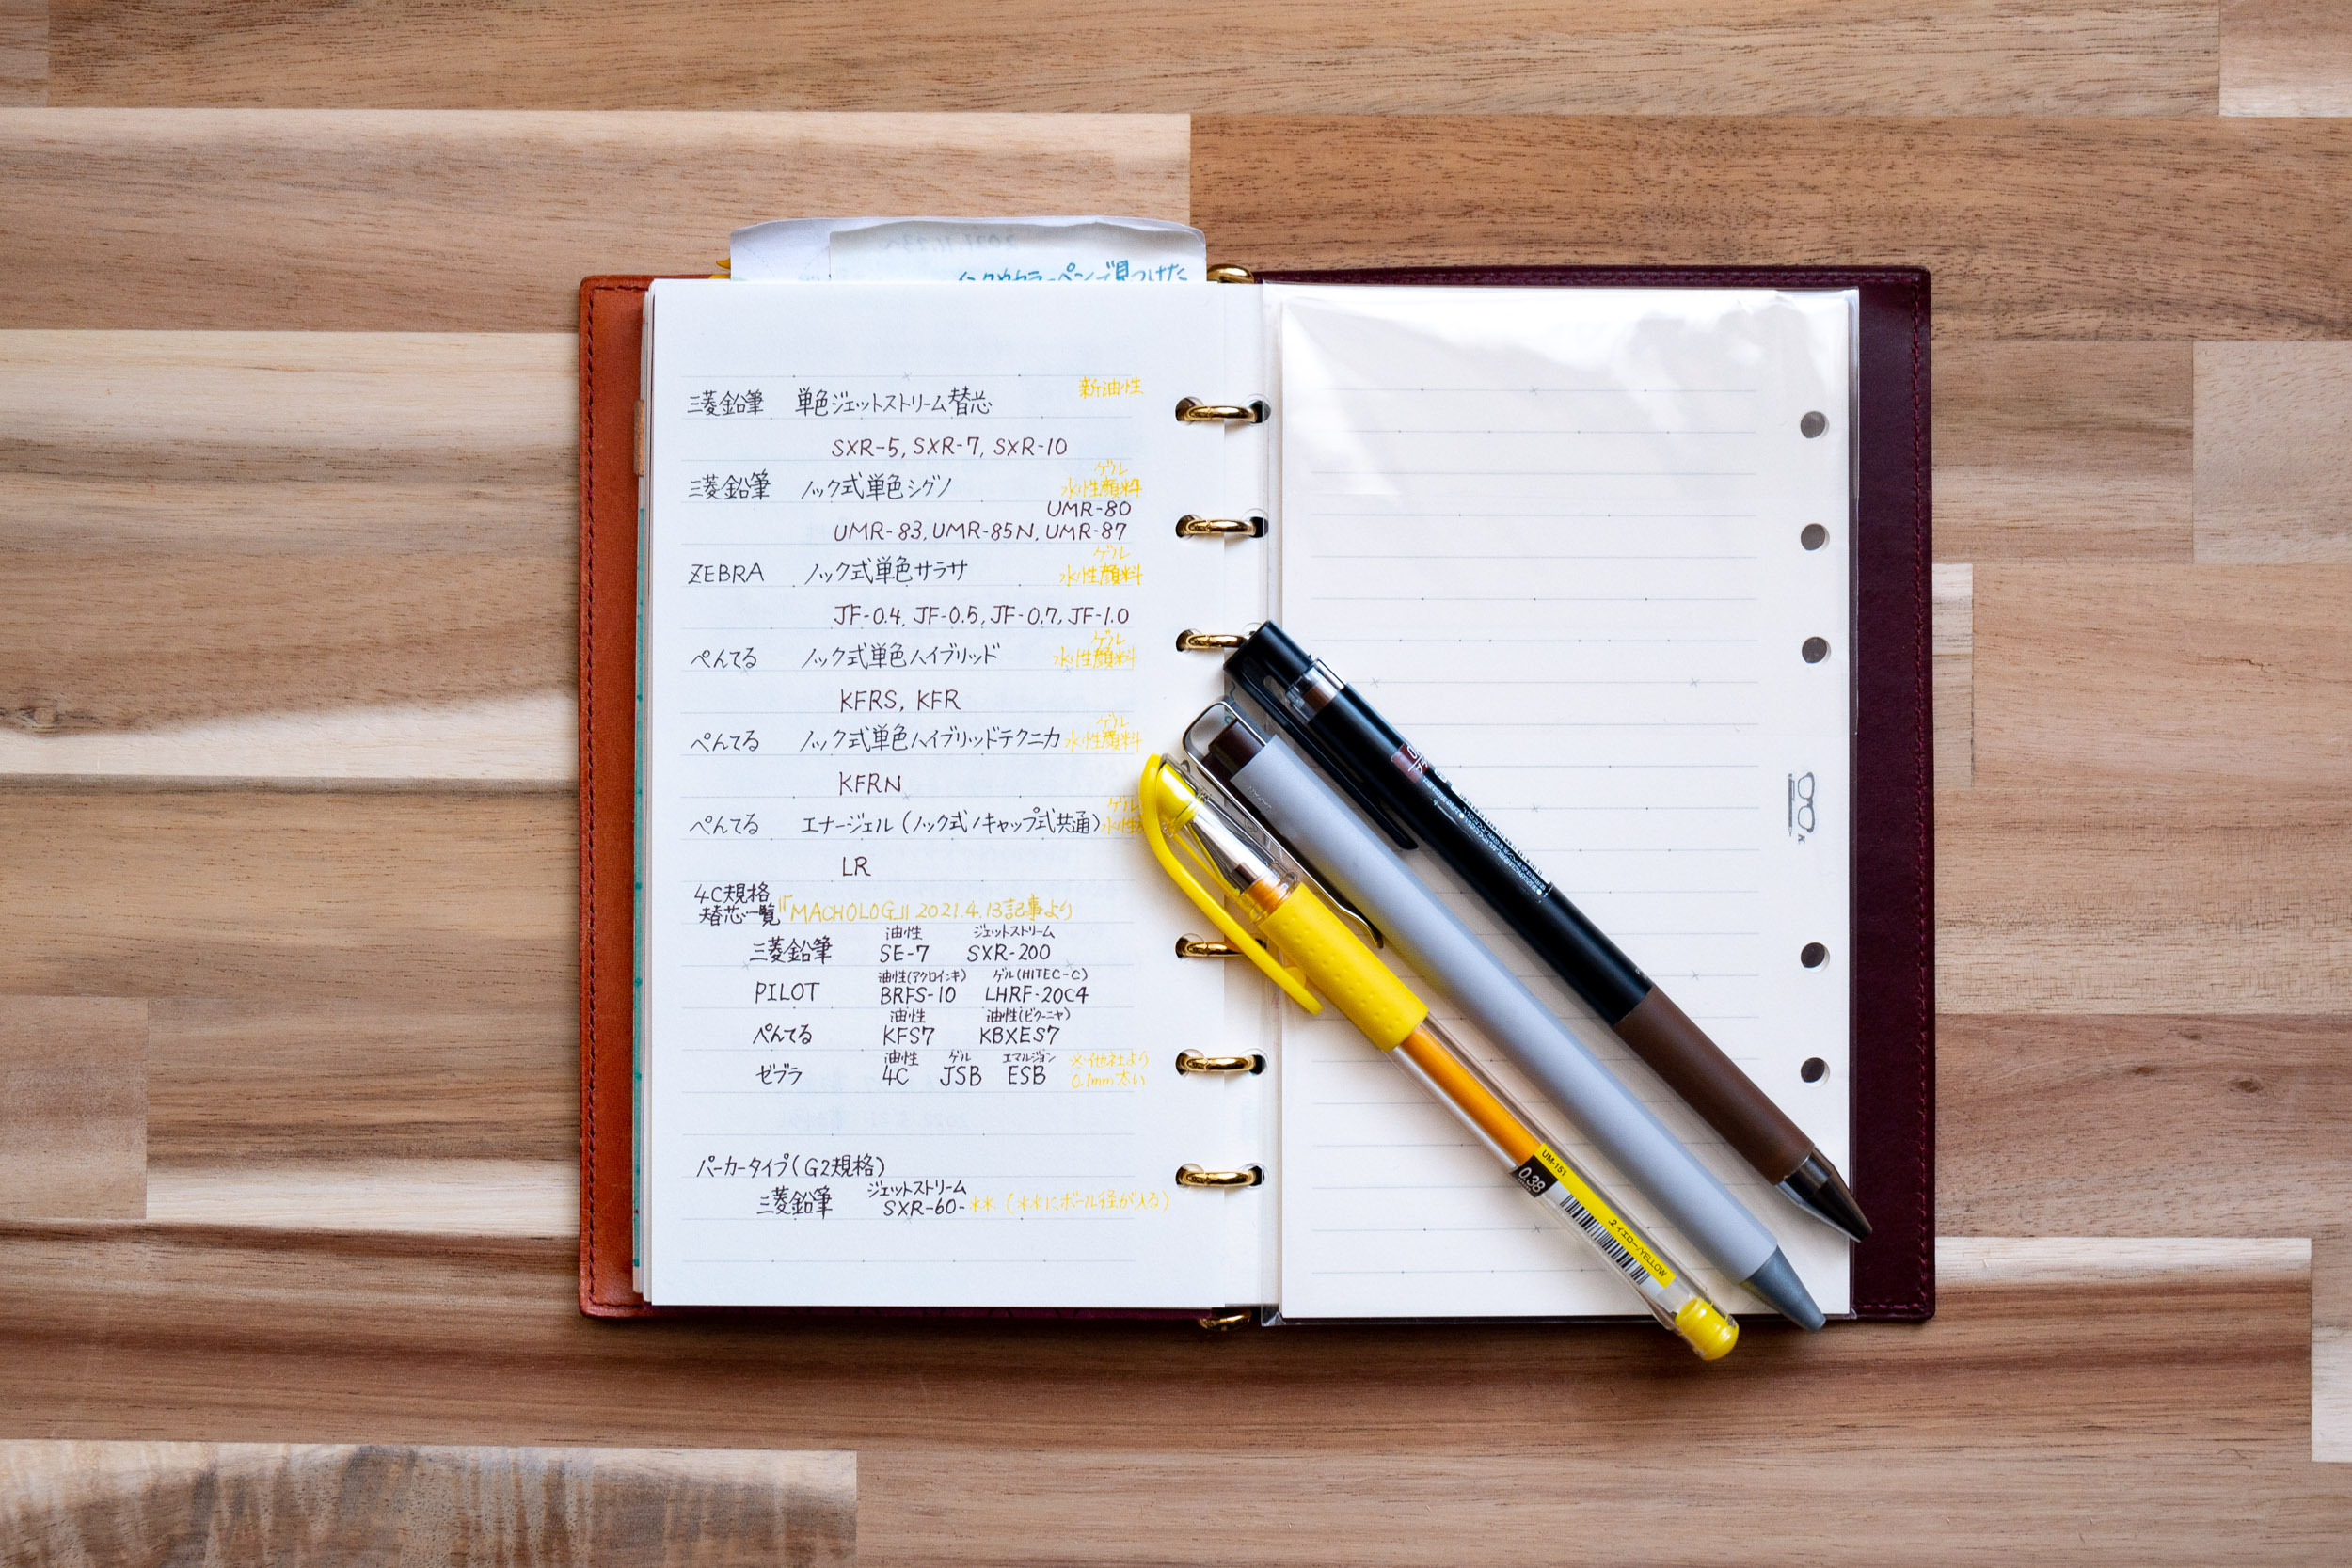 インクやカラーペンで見つけた
三菱鉛筆 単色ジェットストリーム替芯 新油性
SXR-5, SXR-7, SXR-10
三菱鉛筆 ノック式単色シグノ ゲル 水性顔料
UMR-80
UMR-83, UMR-85N, UMR-87
ZEBRA ノック式単色サラサ ゲル 水性顔料
JF-0.4, JF-0.5, JF-0.7, JF-1.0
ぺんてる ノック式単色ハイブリッド ゲル 水性顔料
KFRS, KFR
ぺんてる ノック式単色ハイブリッドテクニカ ゲル 水性顔料
KFRN
ぺんてる エナージェル(ノック式/キャップ式共通) ゲル 水性
LR
4C規格
替芯一覧 『MACHOLOG』 2021.4.13記事より
油性 ジェットストリーム
三菱鉛筆 SE-7 SXR-200
油性(アクロインキ) ゲル(HITEC-C)
PILOT BRFS-10 LHRF-20C4
油性 油性(ビクーニャ)
ぺんてる KFS7 KBXES7
油性 ゲル エマルジョン ※他社より
ゼブラ 4C JSB ESB 0.1mm太い
パーカータイプ(G2規格)
ジェットストリーム
三菱鉛筆 SXR-60-** (**にボール径が入る)
UM-151
0.38
.2 イエロー/YELLOW